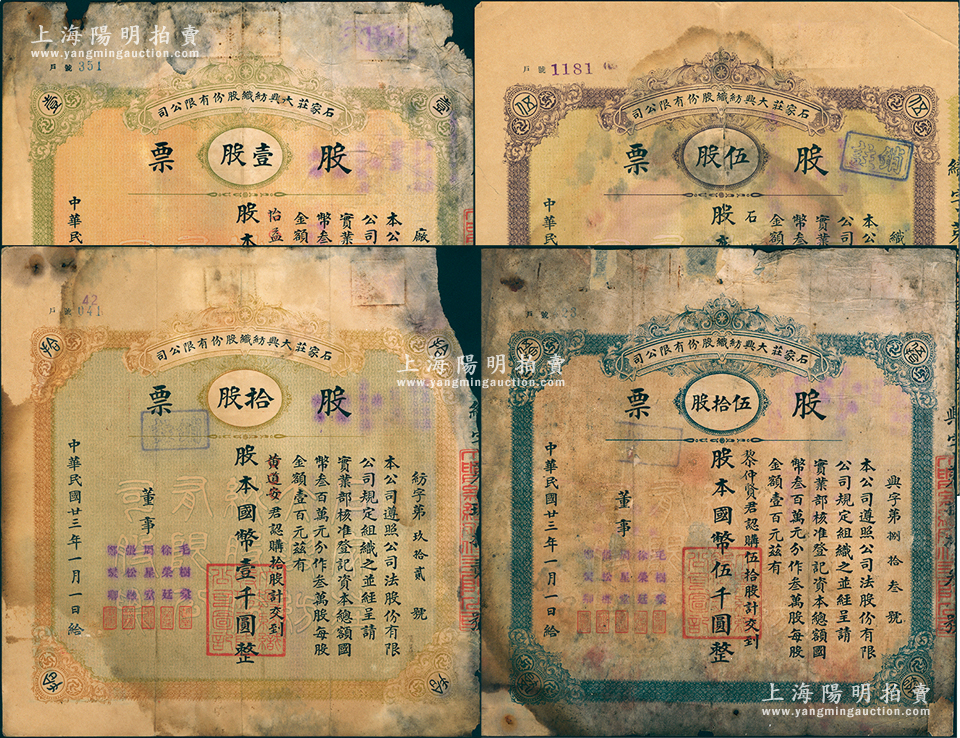 上海陽明拍賣
www.yangmingauction.com
戶號 351
石家莊大興紡織股份有限公司
壹
壹
股
壹股
票
本公
公司
實業
幣叁
金額
怡益
股本
中華民
廠
戶號 1181
石家莊大興紡織股份有限公司
伍
伍
股
伍股
票
註銷
本公
公司
實業
幣叁
金額
石
股
中華民
織
上海陽明拍賣
www.yangmingauction.com
42
戶號 041
石家莊大興紡織股份有限公司
拾
股
拾股
票
註銷
紡字第玖拾貳號
本公司遵照公司法股份有限
公司規定組織之並経呈請
實業部核准登記資本總額國
幣叁百萬元分作叁萬股每股
金額壹百元茲有
黄道安君認購拾股計交到
股本國幣壹千圓整
董事
毛樹棠
徐榮廷
周星棠
張松樵
中華民國廿三年一月一日給
拾
拾
戶號
石家莊大興紡織股份有限公司
股
伍拾股
票
興字第捌拾叁號
本公司遵照公司法股份有限
公司規定組織之並経呈請
實業部核准登記資本總額國
幣叁百萬元分作叁萬股每股
金額壹百元茲有
黎仲賢君認購伍拾股計交到
股本國幣伍千圓整
董事
毛樹棠
徐榮廷
周星棠
張松樵
中華民國廿三年一月一日給
上海陽明拍賣
www.yangmingauction.com